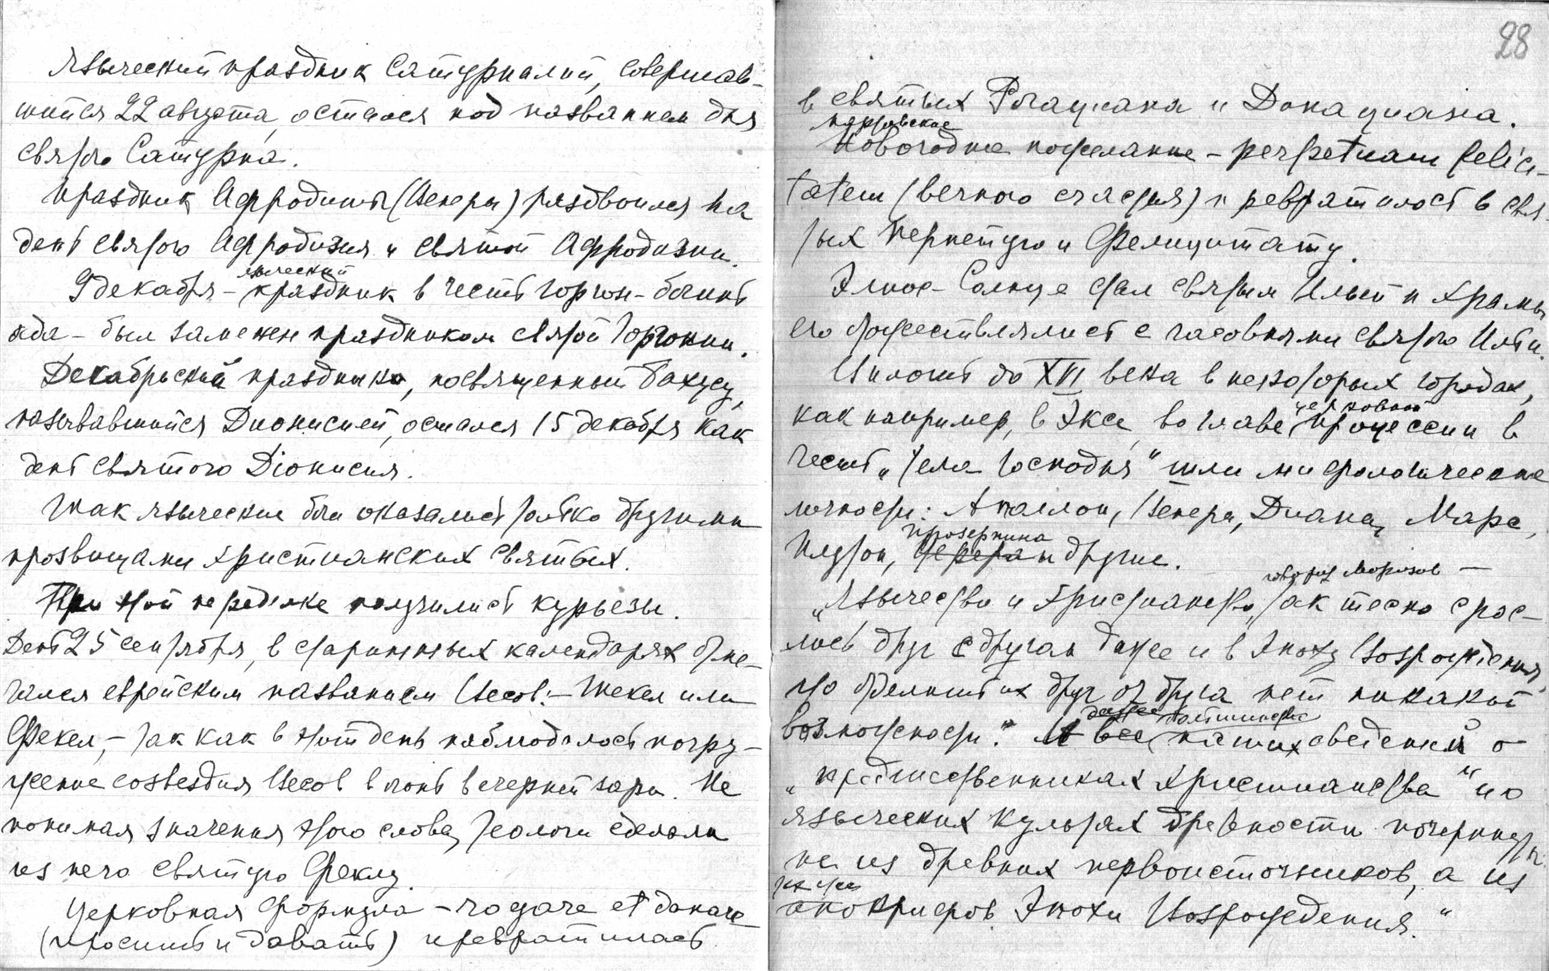 Языческий праздник Сатурналий, совершав-
шийся 22 августа, остался под названием дня
святого Сатурна.
Праздник Афродиты (Венеры) раздвоился на
день святого Афродизия и святой Афродизии.
языческий
9 декабря – праздник в честь горгон – богинь
ада – был заменен праздником святой Горгонии.
Декабрьский праздник, посвященный Бахусу,
называвшийся Дионисией, остался 15 декабря как
день святого Діонисия.
Так языческие боги оказались только другими
прозвищами христианских святых.
При этой переделке получились курьезы.
День 25 сентября, в старинных календарях отме-
чался еврейским названием Весов: – Текел или
Фекел, – так как в этот день наблюдалось погру-
жение созвездия Весов в огонь вечерней зари. Не
понимая значения этого слова, теологи сделали
из него святую Феклу.
Церковная формула – rogare et donare
(просить и давать) превратилась
28
в святых Рогациана и Донациана.
Новогоднее пожелание – perpetuam felici-
tatem (вечного счастья) превратилось в свя-
тых Перпетую и Фелицитату.
Элиос – Солнце стал святым Ильей и храмы
его отождествлялись с часовнями святого Ильи.
Вплоть до XVI века в некоторых городах,
церковной
как например, в Эксе, во главе процессии в
честь „Тела Господня" шли мифологические
личности: Аполлон, Венера, Диана, Марс,
Прозерпина
Плутон, Церера и другие.
говорит Морозов –
„Язычество и христианство, так тесно срос-
лось друг с другом даже и в Эпоху Возрождения,
что отделить их друг от друга нет никакой
возможности." И все наших сведений о
„предшественниках христианства" и о
языческих культах древности почерпнуты
не из древних первоисточников, а из
апокрифов Эпохи Возрождения."